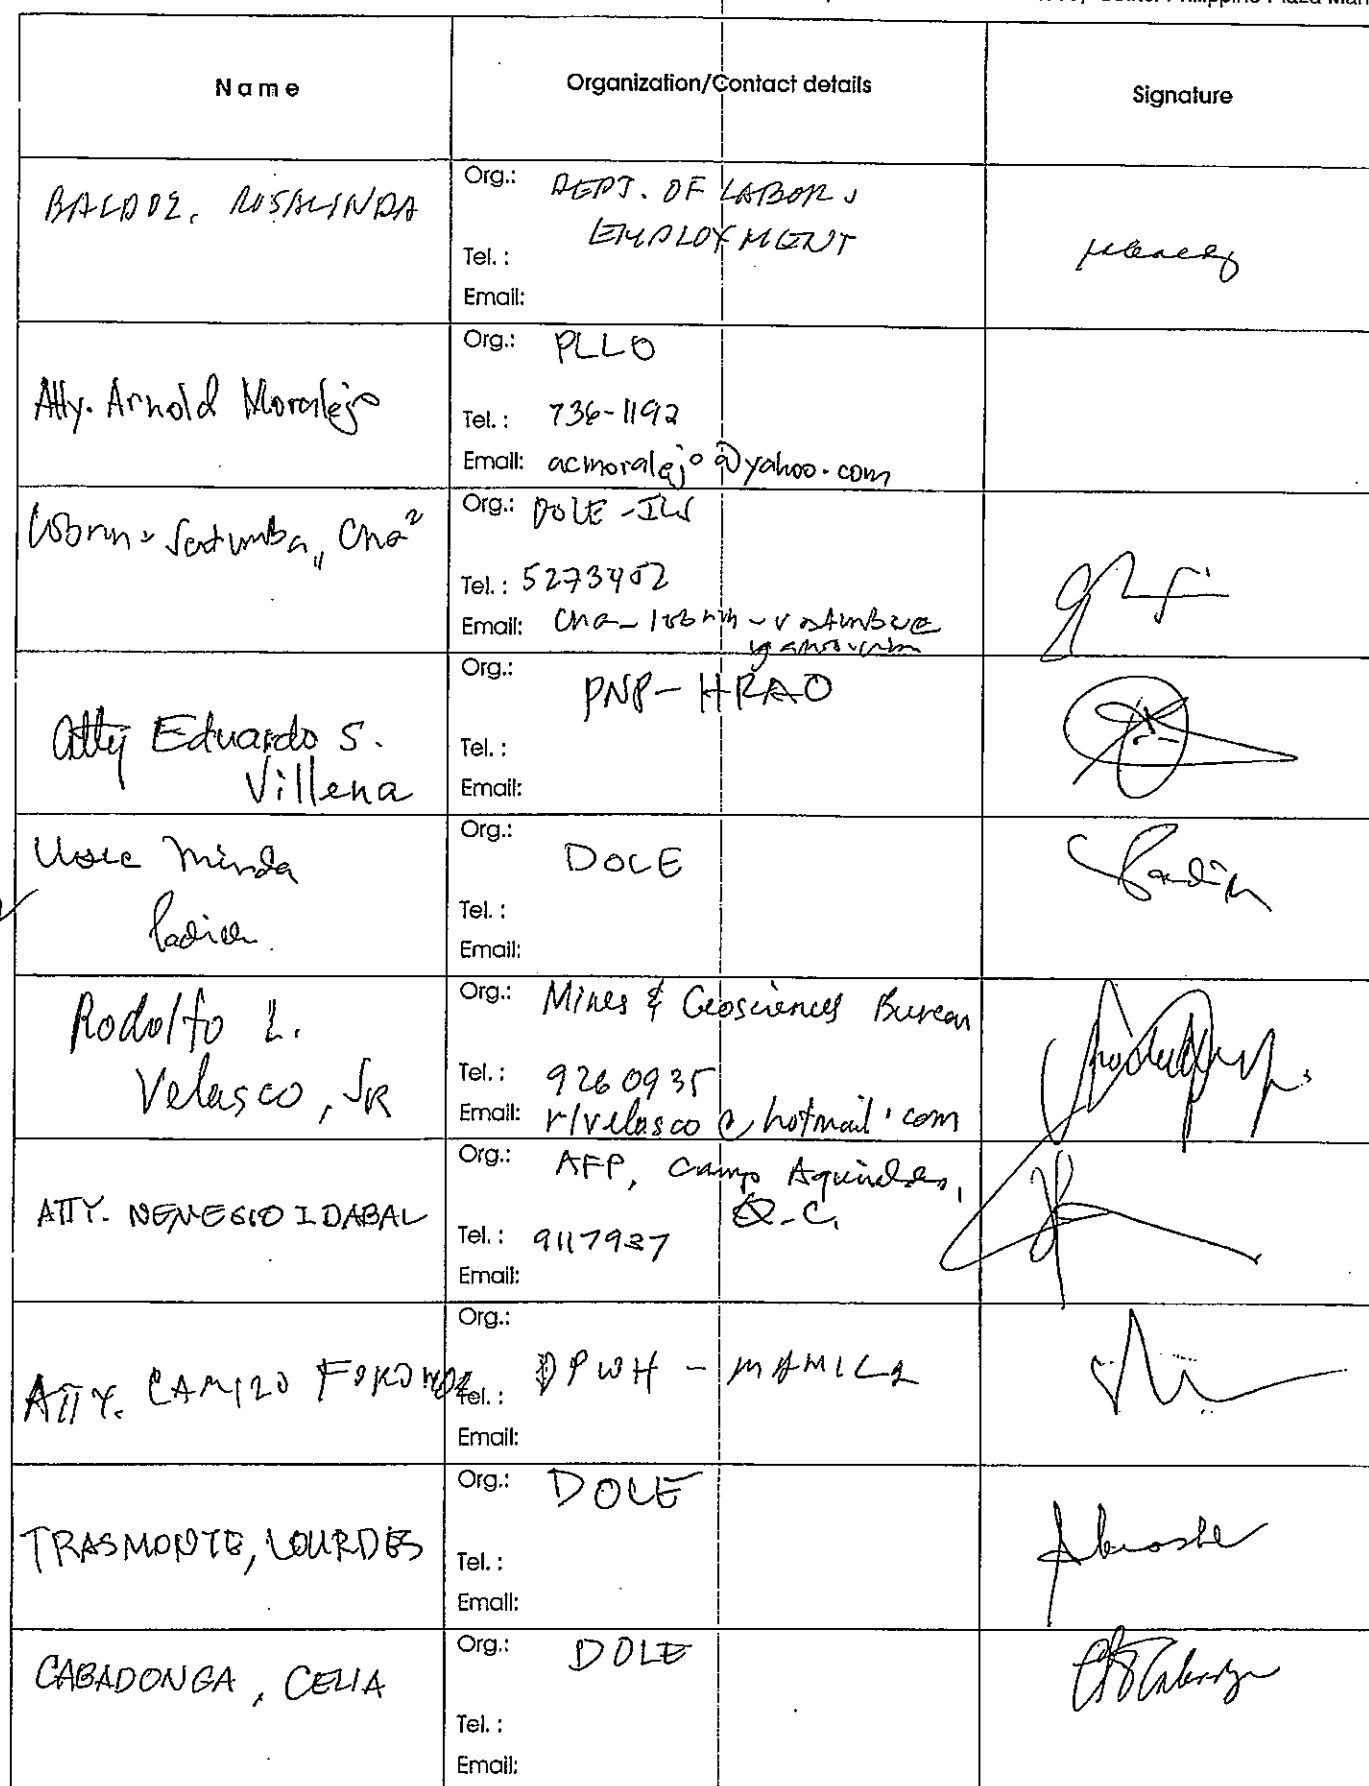 Philippine Plaza
Name
Organization/Contact details
Signature
BALDOZ, ROSALINDA
Org.: DEPT. OF LABOR &
EMPLOYMENT
Tel. :
Email:
Atty. Arnold Moralejo
Org.: PLLO
Tel. : 736-1192
Email: acmoralejo@yahoo.com
Org.: DOLE-ILS
Tel. : 5273452
Email:
Atty Eduardo S.
Villena
Org.: PNP-HRAO
Tel. :
Email:
Usec Minda
Org.: DOLE
Tel. :
Email:
Rodolfo L.
Velasco, JR
Org.: Mines & Geosciences Bureau
Tel. : 9260935
Email: rlvelasco@hotmail.com
ATTY. NEMESIO I DABAL
Org.: AFP, Camp Aguinaldo,
Q.C.
Tel. : 9117937
Email:
ATTY.
Org.: DPWH - MANILA
Tel. :
Email:
TRASMONTE, LOURDES
Org.: DOLE
Tel. :
Email:
CABADONGA, CELIA
Org.: DOLE
Tel. :
Email: